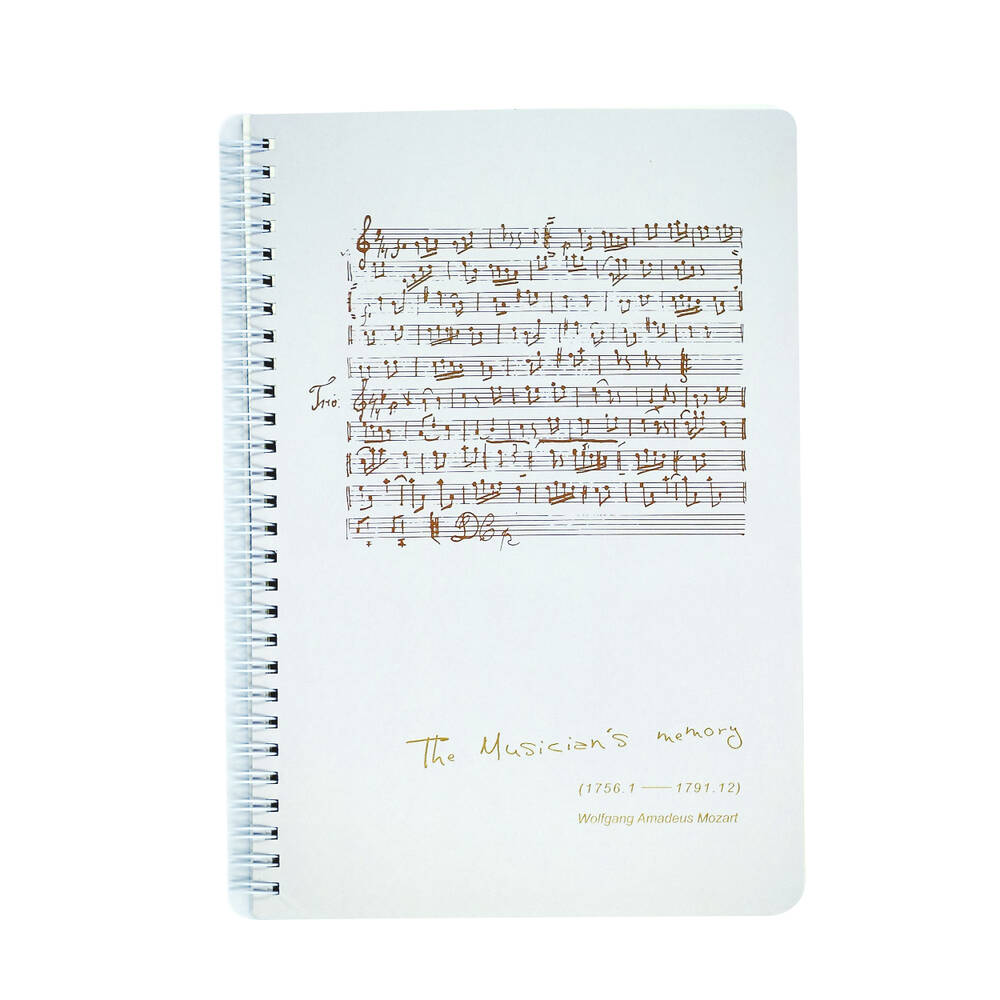 Trio.
The Musician's memory
(1756.1 —— 1791.12)
Wolfgang Amadeus Mozart